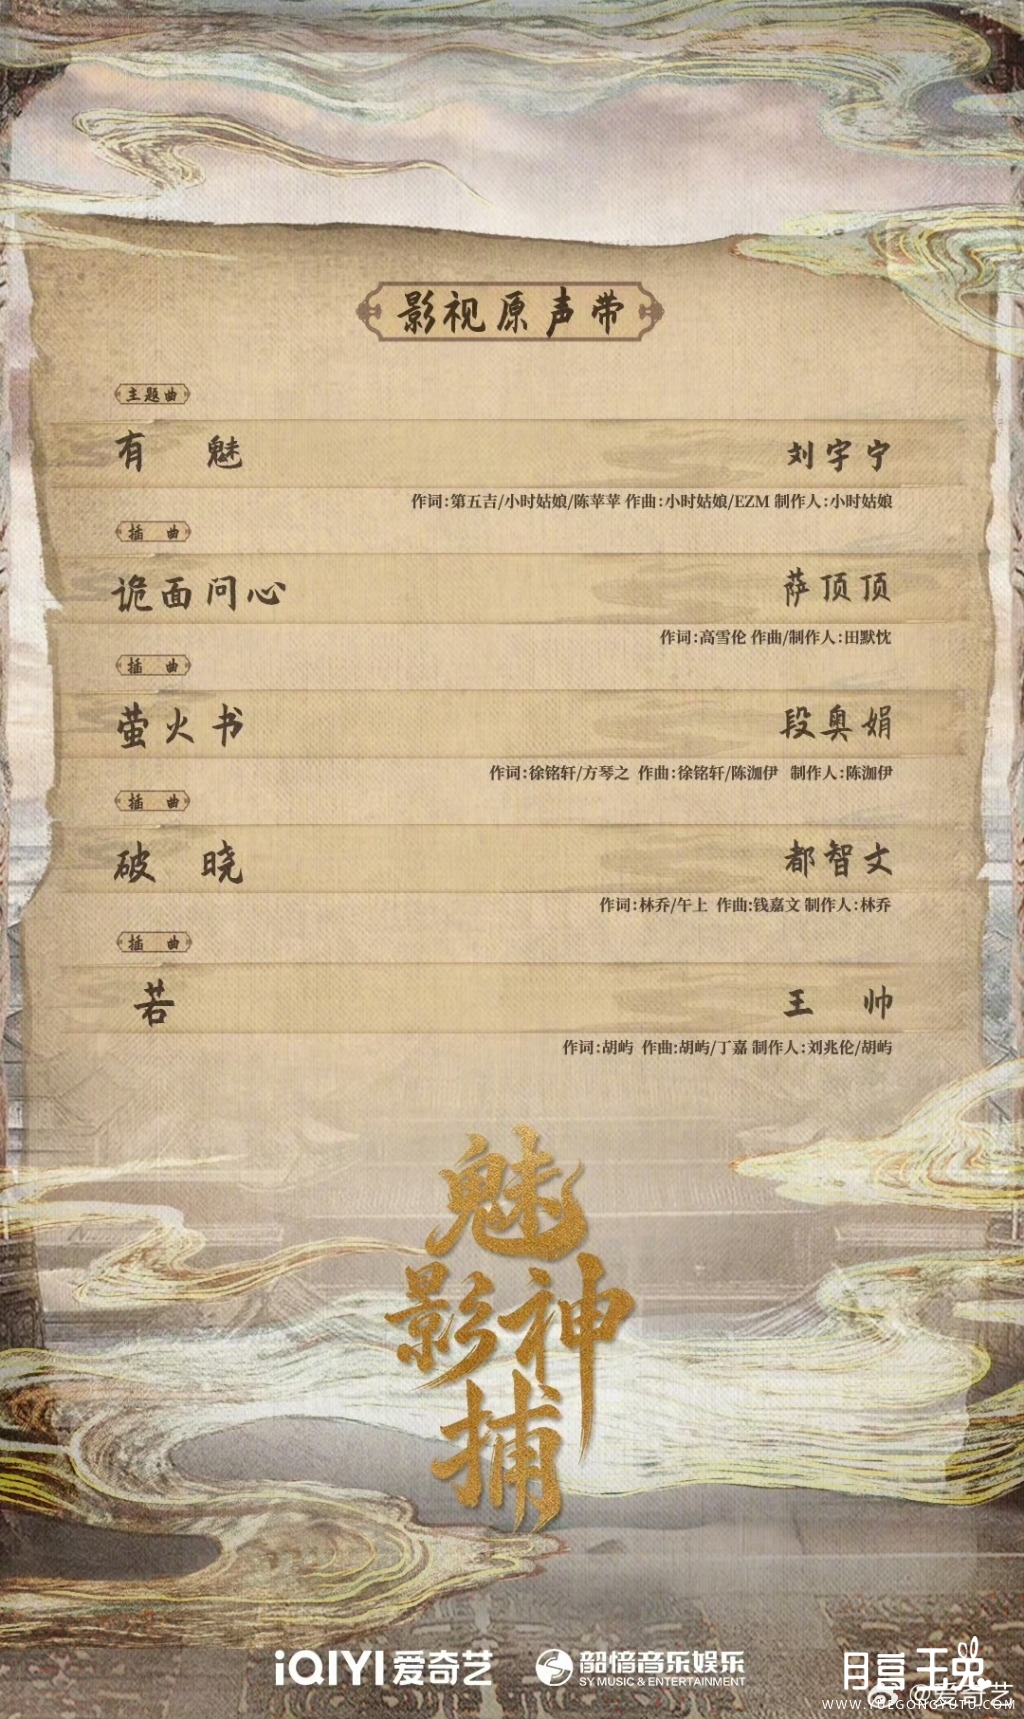 影视原声带
主题曲
有 魅 刘宇宁
作词:第五吉/小时姑娘/陈苹苹 作曲:小时姑娘/EZM 制作人:小时姑娘
插 曲
诡面问心 萨顶顶
作词:高雪伦 作曲/制作人:田默忱
插 曲
萤火书 段奥娟
作词:徐铭轩/方琴之 作曲:徐铭轩/陈泇伊 制作人:陈泇伊
插 曲
破 晓 都智文
作词:林乔/午上 作曲:钱嘉文 制作人:林乔
插 曲
若 王 帅
作词:胡屿 作曲:胡屿/丁嘉 制作人:刘兆伦/胡屿
魅
影神
捕
iQIYI 爱奇艺 韶愔音乐娱乐 月宫玉兔
SY MUSIC & ENTERTAINMENT
@爱奇艺
WWW.YUEGONGYUTU.COM